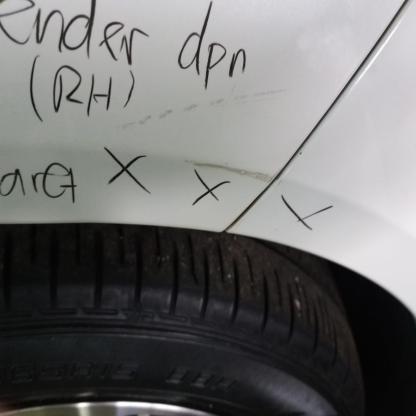 ender dpn
(RH)
arG X X X